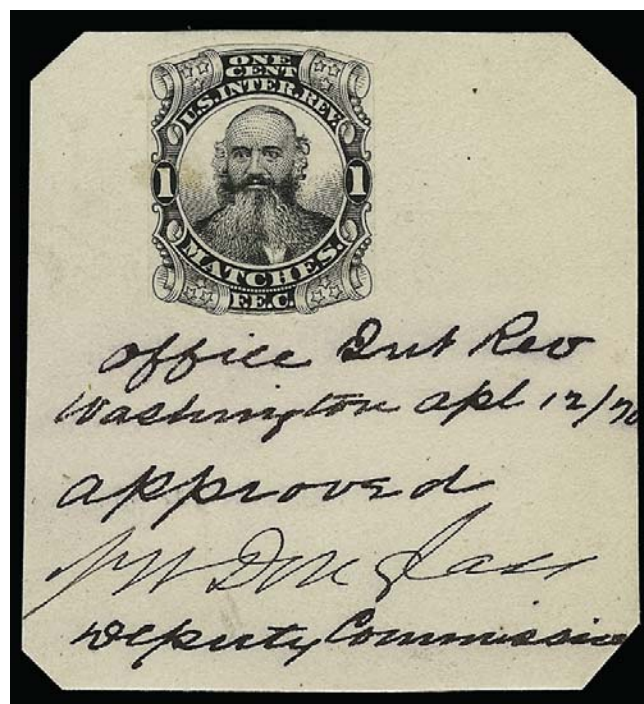 ONE
CENT
U.S. INTER. REV.
1 1
MATCHES.
F.E.C.
Office Int Rev
Washington apl 12/70
approved
J W Douglass
Deputy Commissione